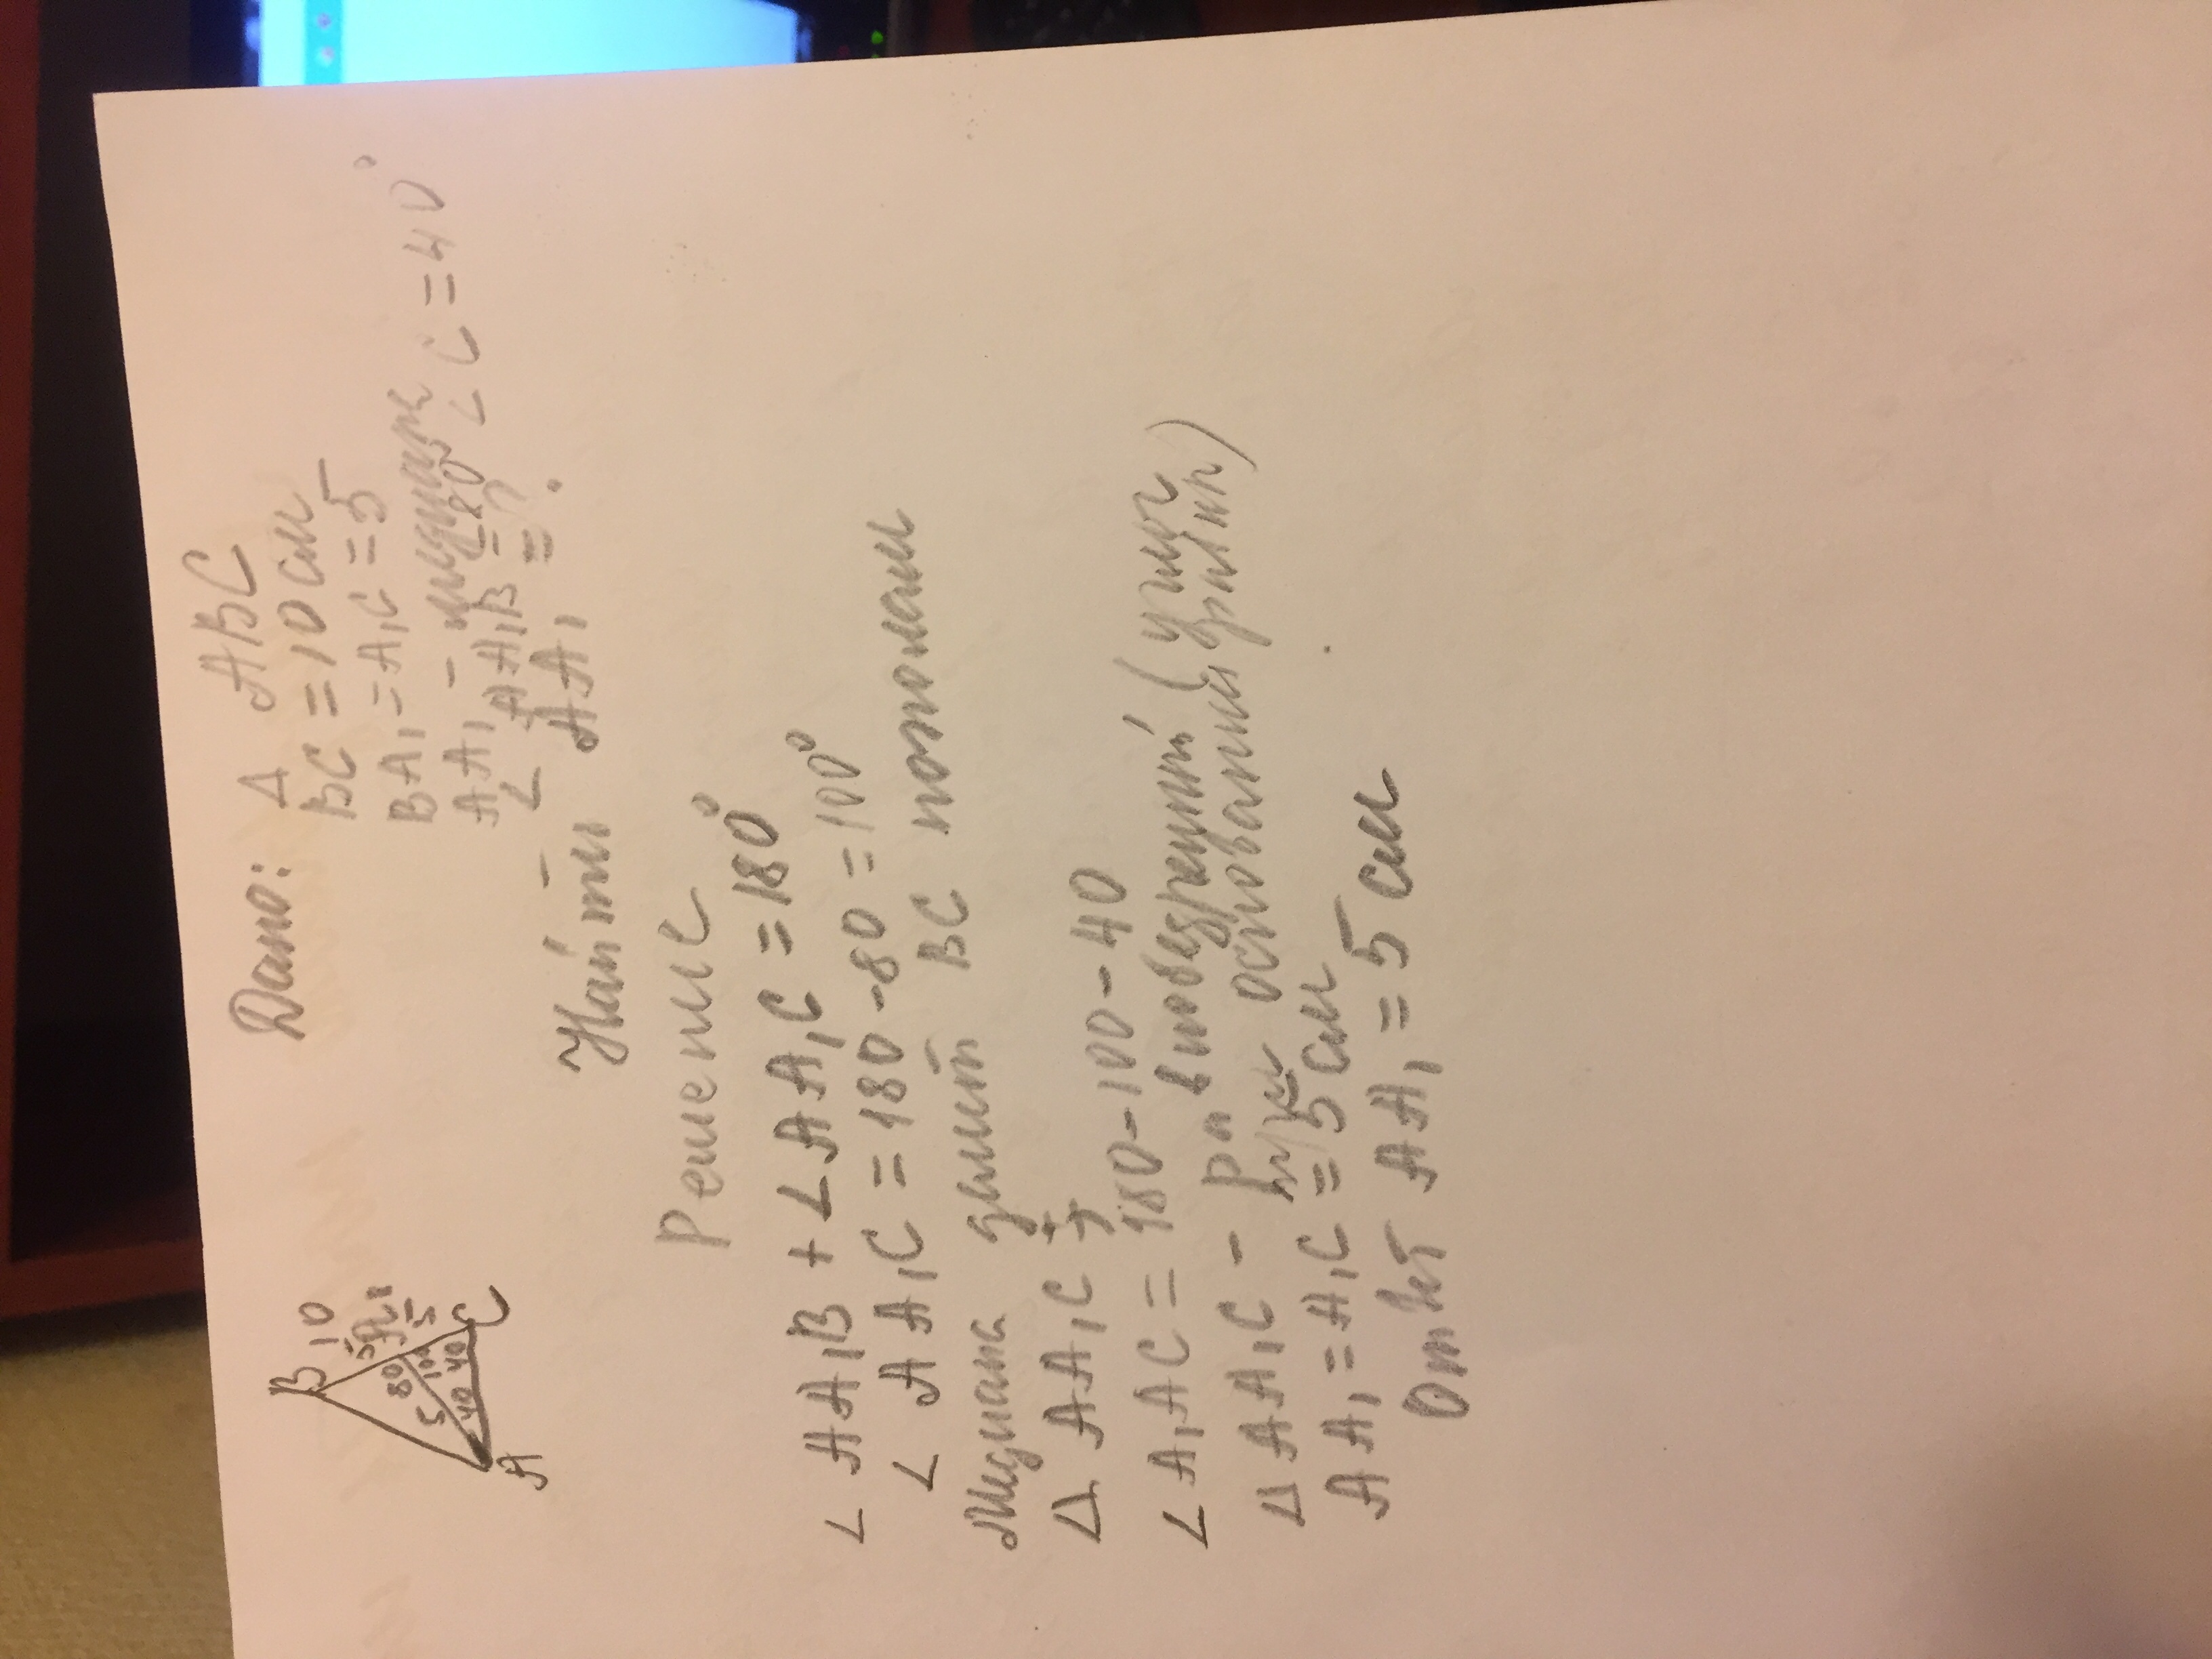 Дано: Δ ABC
BC = 10 см
BA₁ = A₁C = 5
AA₁ - медиана
∠ AA₁B = 80 ∠ C = 40°
Найти AA₁ = ?
B 10
5 A₁
80 5
5 100
40 40 C
A
Решение
∠ AA₁B + ∠ AA₁C = 180°
∠ AA₁C = 180 - 80 = 100°
Медиана делит BC пополам
Δ AA₁C
∠ A₁AC = 180 - 100 - 40
Δ AA₁C - равнобедренный (углы
при основании равны)
AA₁ = A₁C = 5 см
Ответ AA₁ = 5 см